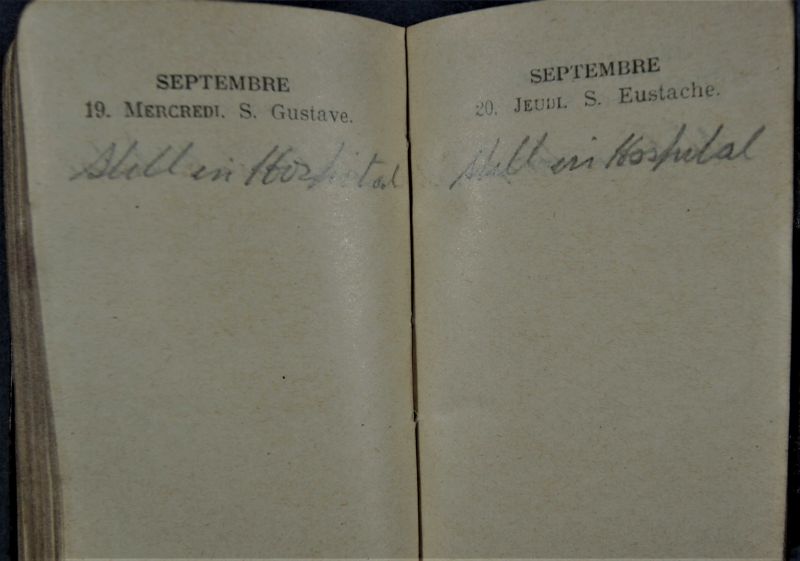 SEPTEMBRE
19. MERCREDI. S. Gustave.
Still in Hospital
SEPTEMBRE
20. JEUDI. S. Eustache.
Still in Hospital